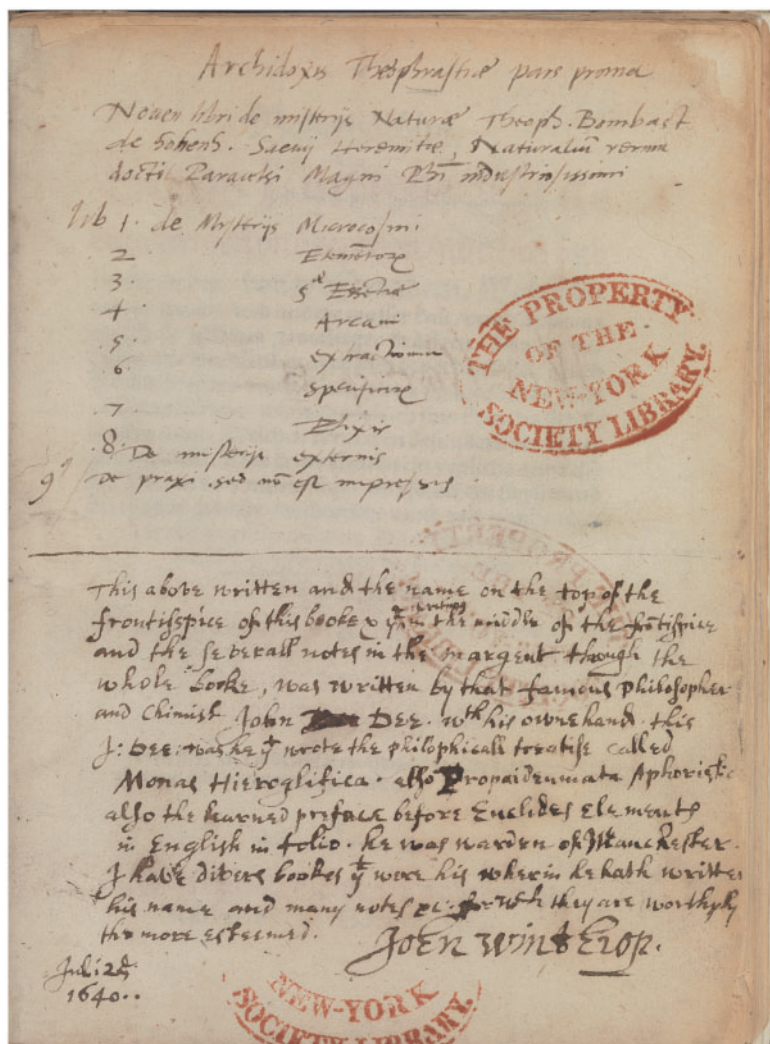 Archidoxis Theophrastiæ pars prima
Novem libri de misterijs Naturæ Theoph. Bombast
de hohenh. Suevij Heremitæ, Naturaliū rerum
docti Paracelsi Magni Phī industriosissimi
lib 1. de Misterijs Microcosmi.
2 Elemētorū
3. 5æ Essētiæ
4 Arcani
5. extractionum
6 specificorū
7 Elixir
8. De misterijs externis
9 De praxi sed nō est impressus
THE PROPERTY
OF THE
NEW-YORK
SOCIETY LIBRARY.
This above written and the name on the top of the
frontispice of this booke & yt writing in the middle of the frōtispice
and the severall notes in the margent through the
whole booke, was written by that famous philosopher
and Chimist John Dee. wth his owne hand. this
J: Dee: was he yt wrote the philosphicall treatise called
Monas Hieroglifica. also Propaideumata Aphoristic
also the learned preface before Euclides elements
in English in folio. he was warden of Manchester.
I have divers bookes yt were his wherin he hath written
his name and many notes for wch they are worthyly
the more esteemed.
John Winthrop.
Juli 28
1640..
NEW-YORK
SOCIETY LIBRARY.